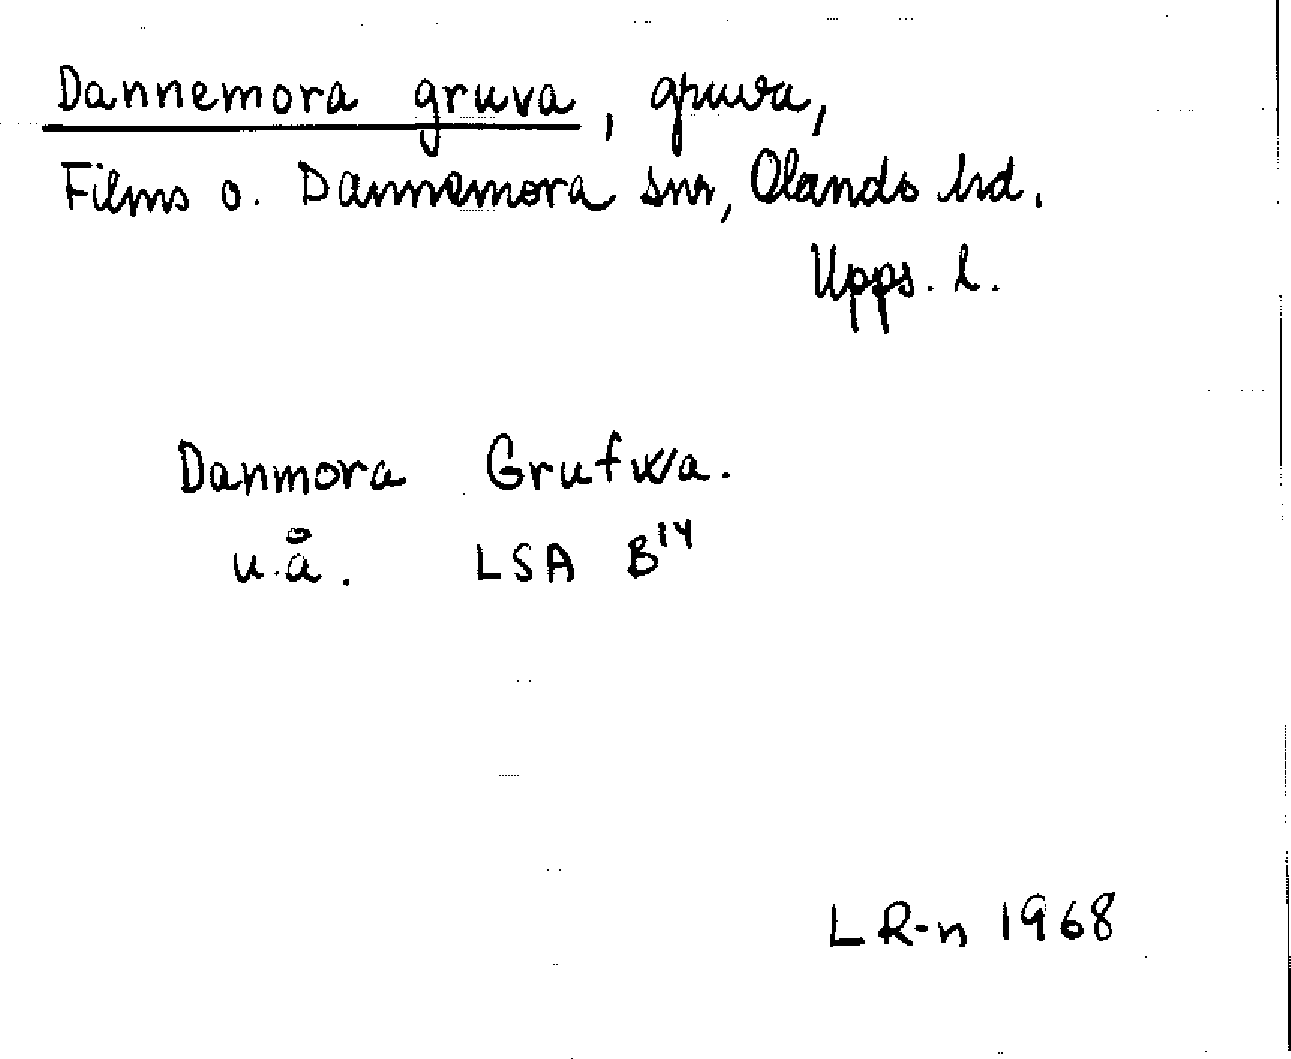 Dannemora gruva, gruva,
Films o. Dannemora snr, Olands hd.
Upps. l.
Danmora Grufwa.
u.å. LSA B14
LR-n 1968